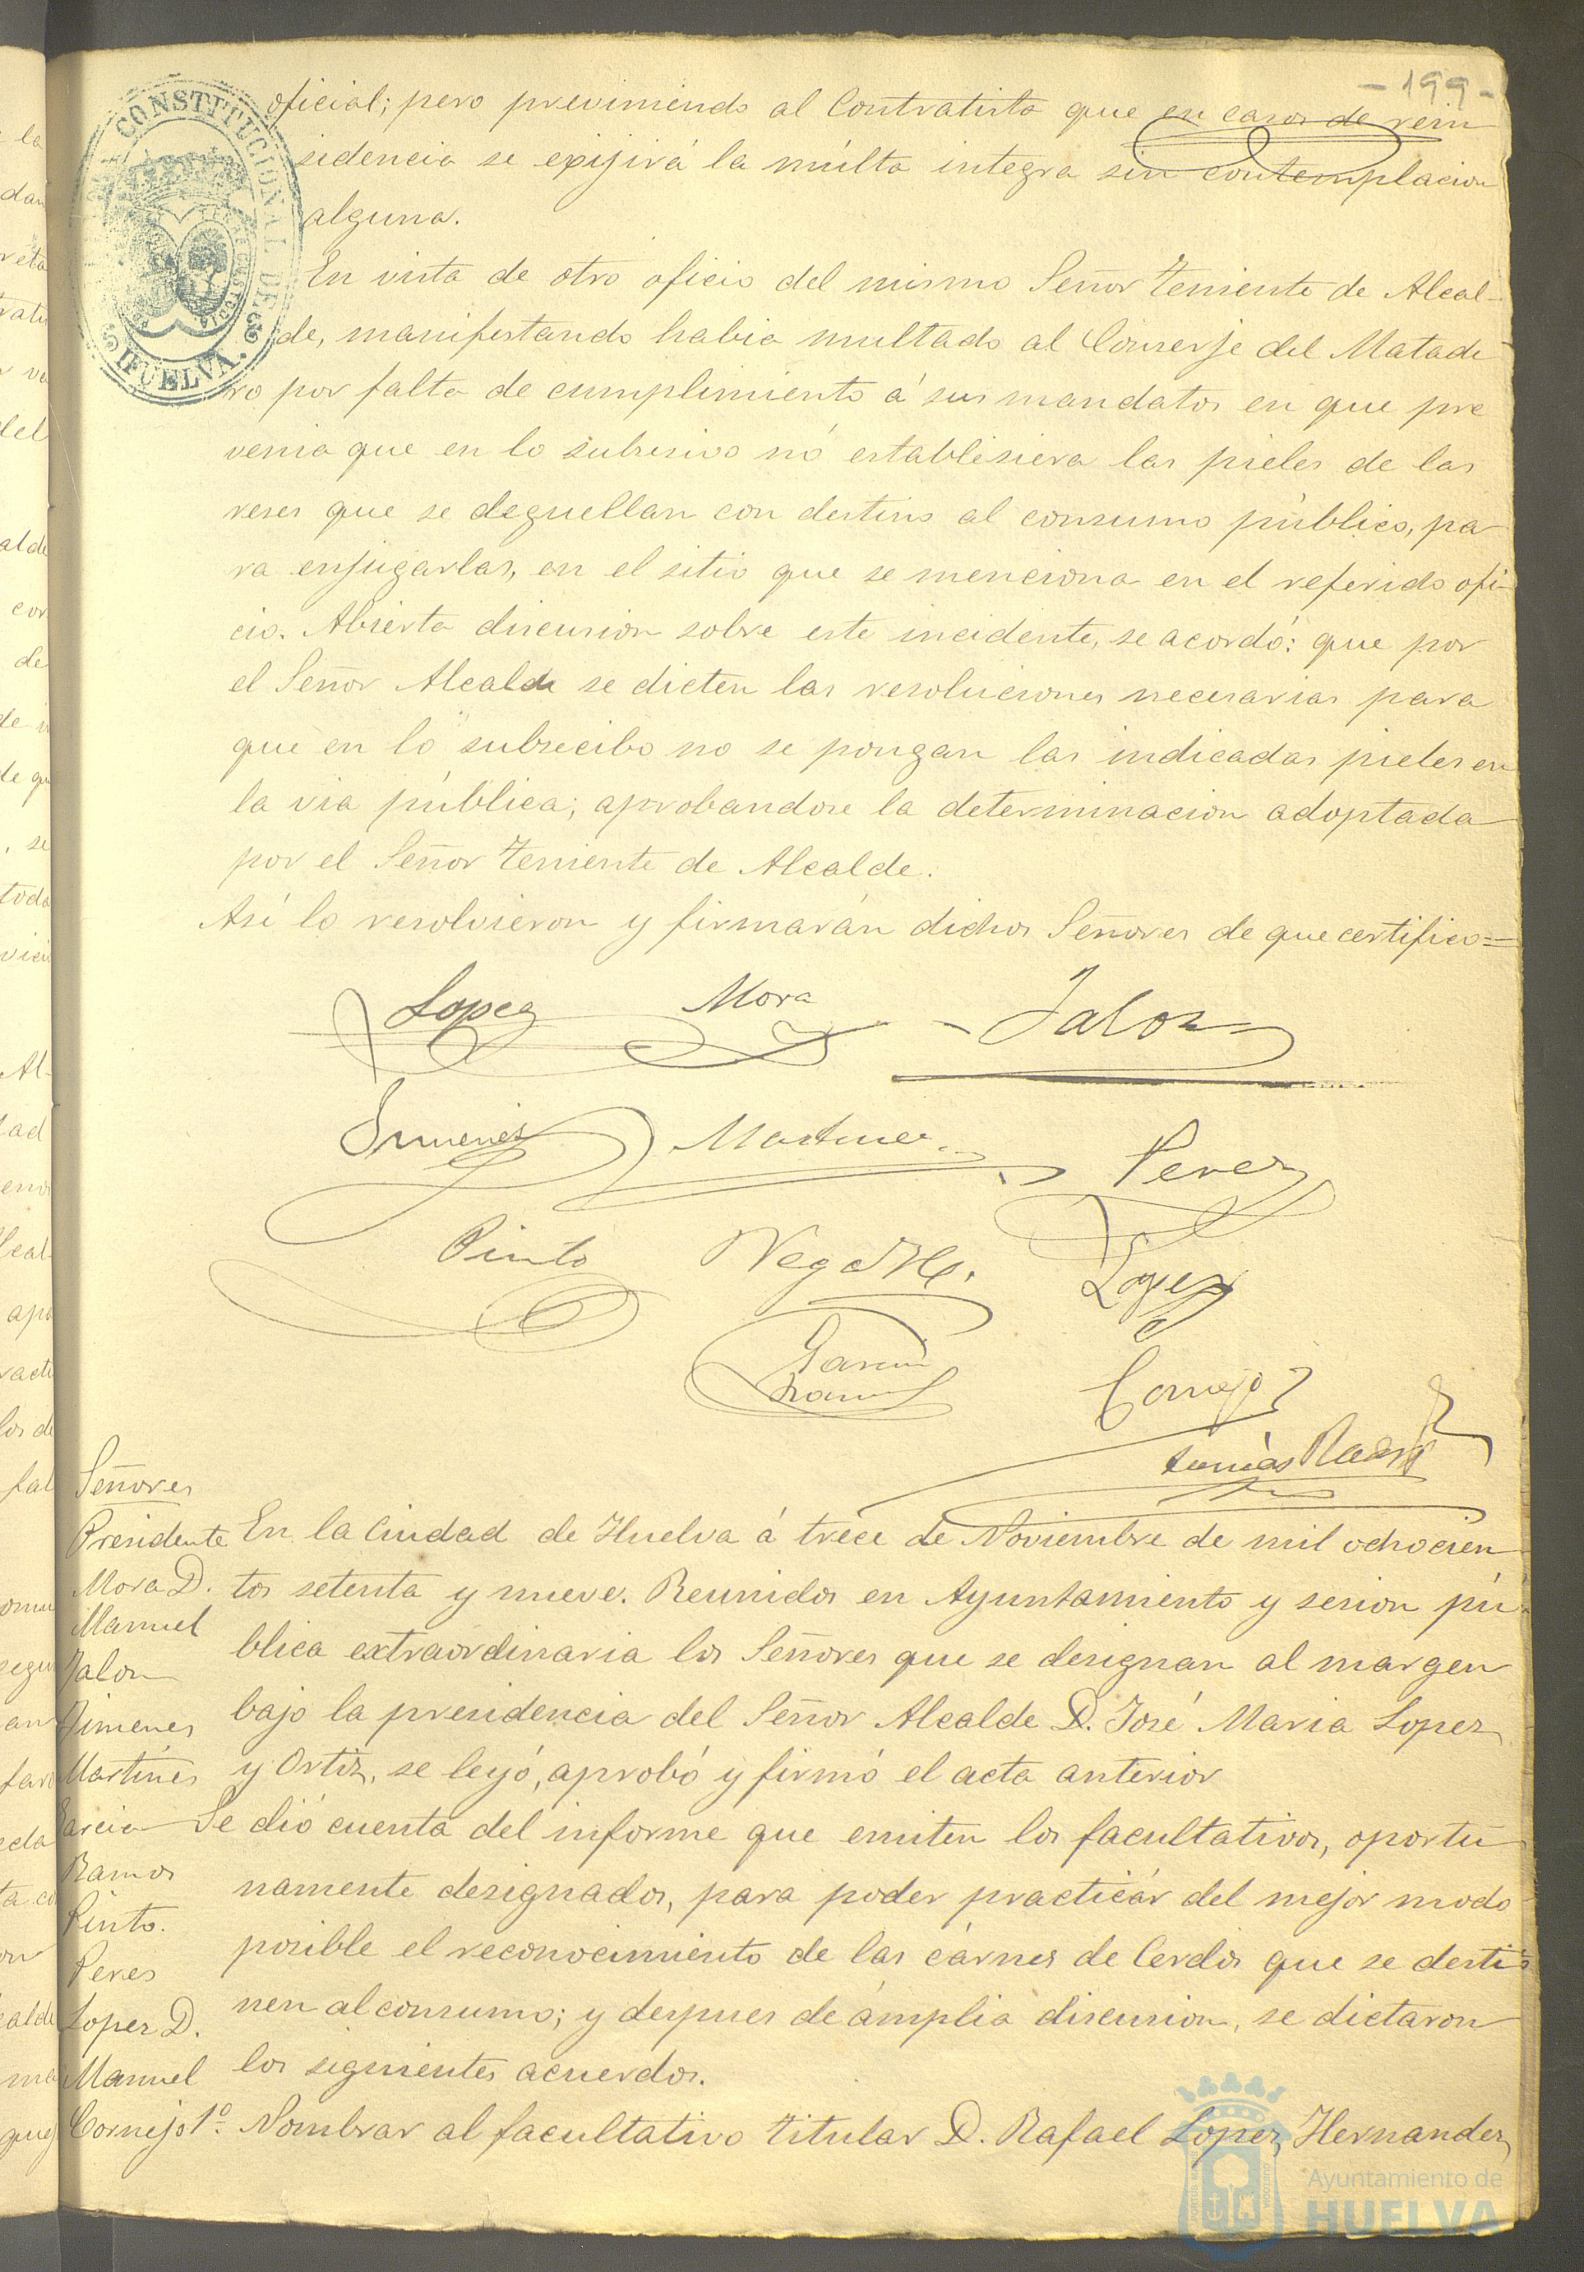 -199-
oficial; pero previniendo al Contratista que en casos de rein
sidencia se exijirá la múlta integra sin contemplacion
alguna.
En vista de otro oficio del mismo Señor Teniente de Alcal-
de, manifestando habia multado al Conserje del Matade
ro por falta de cumplimiento á sus mandatos en que pre
venia que en lo subcesivo nó establesiera las pieles de las
reses que se deguellan con destino al consumo público, pa
ra enjugarlas, en el sitio que se menciona en el referido ofi-
cio. Abierta discusion sobre este incidente, se acordó: que por
el Señor Alcalde se dicten las resoluciones necesarias para
que en lo subsecibo no se pongan las indicadas pieles en
la via pública; aprobandose la determinacion adoptada
por el Señor Teniente de Alcalde.
Asi lo resolvieron y firmarán dichos Señores de que certifico=
Lopez Mora Jalon
Jimenez Martinez Perez
Pinto Vega Lopez
Garcia
Ramos Cornejo
Tomás
CONSTITUCIONAL DE HUELVA.
Señores
Presidente
Mora D.
Manuel
Jalon
Jimenes
Martines
Garcia
Ramos
Pinto.
Peres
Lopez D.
Manuel
Cornejo
En la Ciudad de Huelva á trece de Noviembre de mil ochocien
tos setenta y nueve. Reunidos en Ayuntamiento y sesion pú-
blica extraordinaria los Señores que se designan al margen
bajo la presidencia del Señor Alcalde D. José Maria Lopez
y Ortiz, se leyó, aprobó y firmó el acta anterior
Se dió cuenta del informe que emiten los facultativos, oportu
namente designados, para poder practicár del mejor modo
posible el reconocimiento de las cárnes de Cerdos que se desti-
nen al consumo; y despues de ámplia discusion, se dictaron
los siguientes acuerdos.
1º. Nombrar al facultativo titular D. Rafael Lopez Hernandez,
Ayuntamiento de
HUELVA